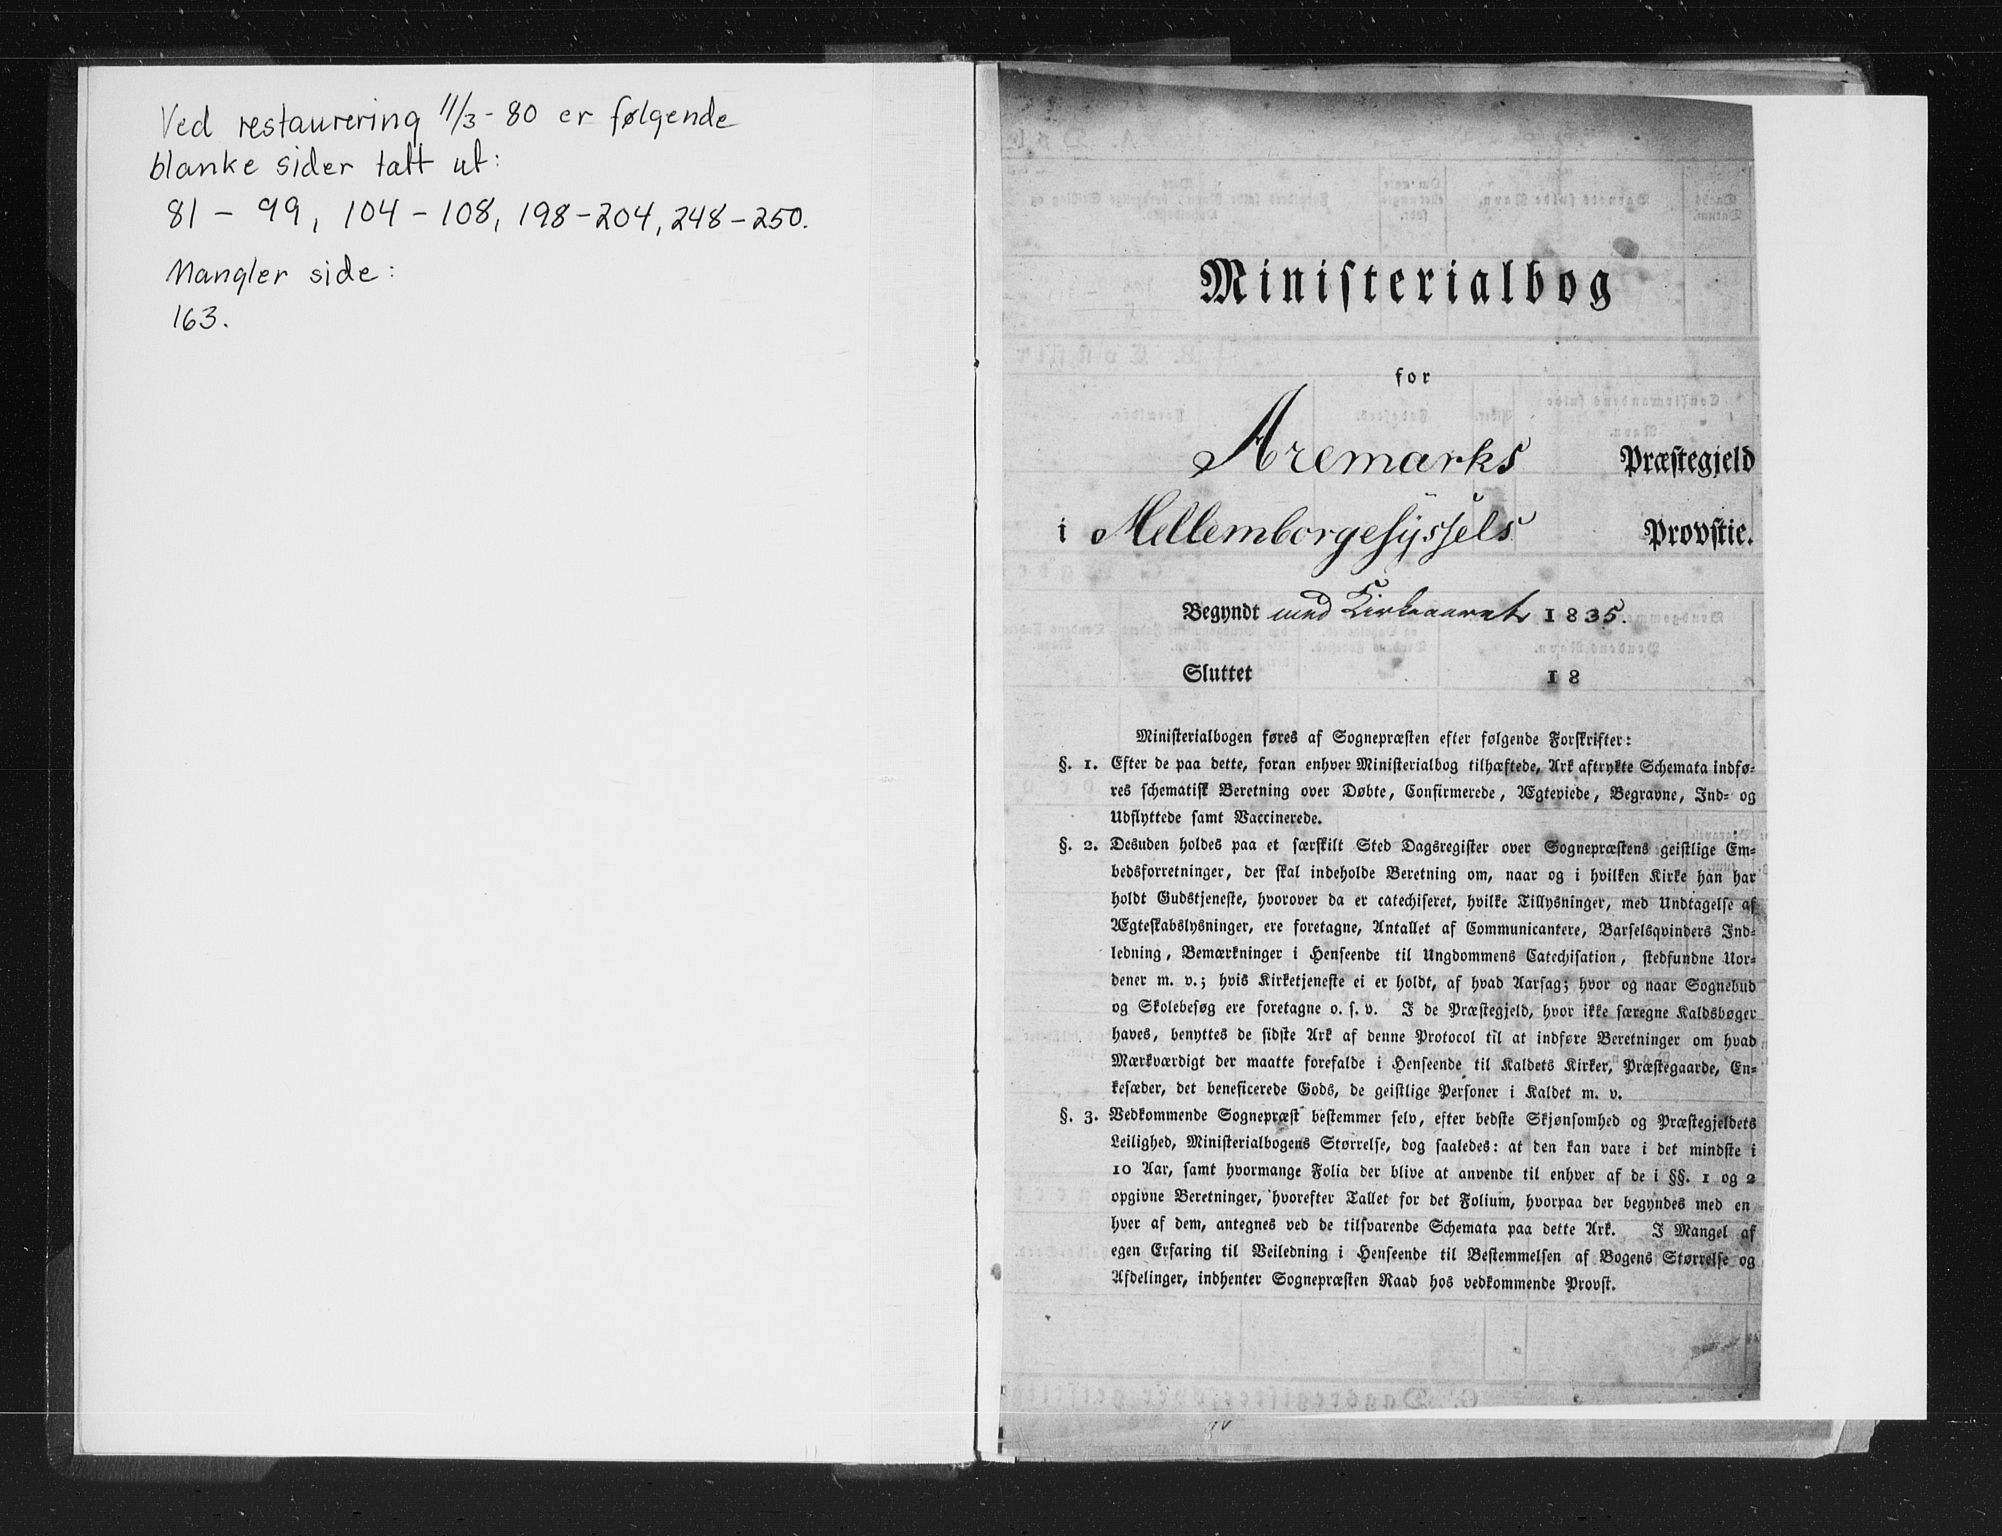 Ved restaurering 11/3-80 er følgende
blanke sider tatt ut:
81 - 99, 104 - 108, 198 - 204, 248 - 250.
Mangler side:
163.
Ministerialbog
for
Aremarks Præstegjeld
i Mellemborgesyssels Provstie.
Begyndt med Kirkeaaret 1835.
Sluttet 18
Ministerialbogen føres af Sognepræsten efter følgende Forskrifter:
§. 1. Efter de paa dette, foran enhver Ministerialbog tilhæftede, Ark aftrykte Schemata indfø-
res schematisk Beretning over Døbte, Confirmerede, Ægteviede, Begravne, Ind- og
Udflyttede samt Vaccinerede.
§. 2. Desuden holdes paa et særskilt Sted Dagsregister over Sognepræstens geistlige Em-
bedsforretninger, der skal indeholde Beretning om, naar og i hvilken Kirke han har
holdt Gudstjeneste, hvorover da er catechiseret, hvilke Tillysninger, med Undtagelse af
Ægteskabslysninger, ere foretagne, Antallet af Communicantere, Barselqvinders Ind-
ledning, Bemærkninger i Henseende til Ungdommens Catechisation, stedfundne Uor-
dener m. v.; hvis Kirketjeneste ei er holdt, af hvad Aarsag; hvor og naar Sognebud
og Skolebesøg ere foretagne o. s. v. I de Præstegjeld, hvor ikke særegne Kaldsbøger
haves, benyttes de sidste Ark af denne Protocol til at indføre Beretninger om hvad
Mærkværdigt der maatte forefalde i Henseende til Kaldets Kirker, Præstegaarde, En-
kesæder, det beneficerede Gods, de geistlige Personer i Kaldet m. v.
§. 3. Vedkommende Sognepræst bestemmer selv, efter bedste Skjønsomhed og Præstegjeldets
Leilighed, Ministerialbogens Størrelse, dog saaledes: at den kan vare i det mindste i
10 Aar, samt hvormange Folia der blive at anvende til enhver af de i §§. 1 og 2
opgivne Beretninger, hvorefter Tallet for det Folium, hvorpaa der begyndes med en
hver af dem, antegnes ved de tilsvarende Schemata paa dette Ark. I Mangel af
egen Erfaring til Veiledning i Henseende til Bestemmelsen af Bogens Størrelse og
Afdelinger, indhenter Sognepræsten Raad hos vedkommende Provst.